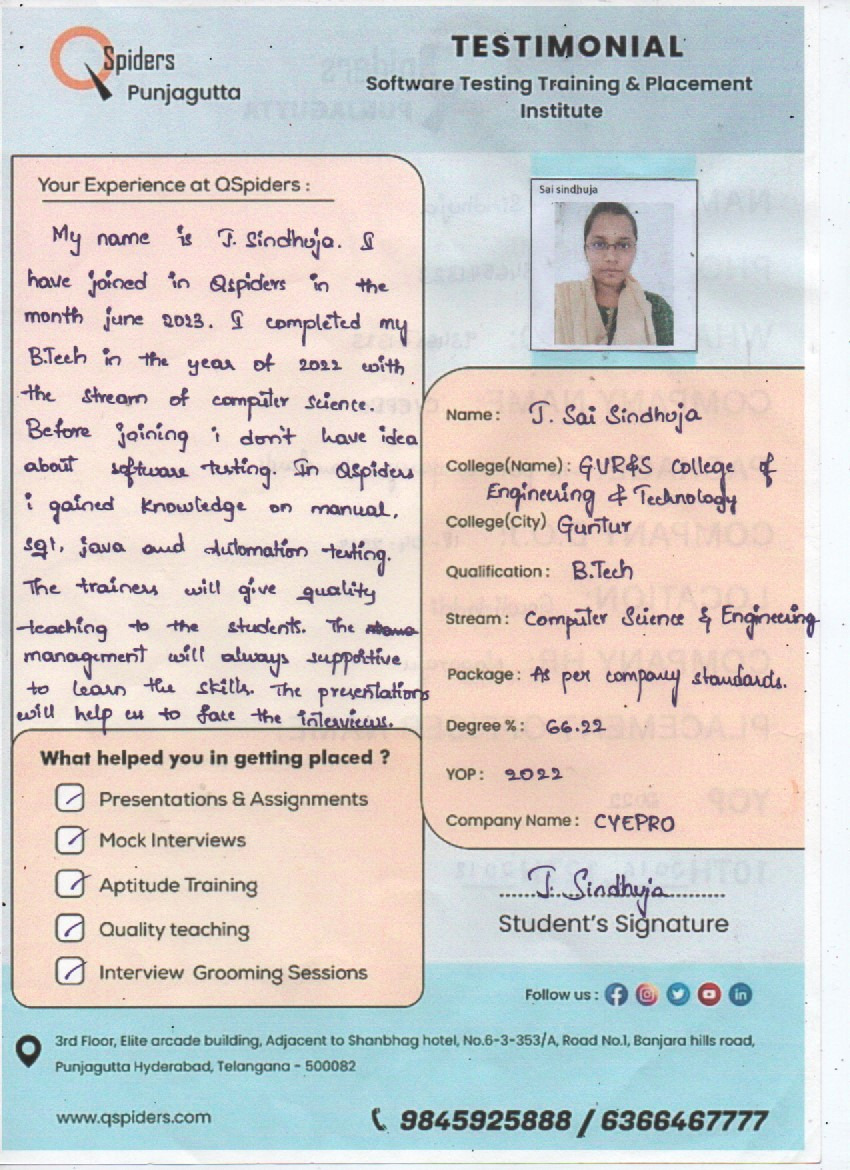 QSpiders
Punjagutta
TESTIMONIAL
Software Testing Training & Placement
Institute
Your Experience at QSpiders :
My name is J. Sindhuja. I
have joined in Qspiders in the
month june 2023. I completed my
B.Tech in the year of 2022 with
the stream of computer science.
Before joining i don't have idea
about software testing. In QSpiders
i gained knowledge on manual,
sql, java and Automation testing.
The trainers will give quality
teaching to the students. The
management will always supportive
to learn the skills. The presentations
will help us to face the interviews.
What helped you in getting placed ?
Presentations & Assignments
Mock Interviews
Aptitude Training
Quality teaching
Interview Grooming Sessions
Sai sindhuja
Name : J. Sai Sindhuja
College(Name) : GVR&S college of
Engineering & Technology
College(City) Guntur
Qualification : B.Tech
Stream : Computer Science & Engineering
Package : As per company standards.
Degree % : 66.22
YOP : 2022
Company Name : CYEPRO
J. Sindhuja
Student's Signature
Follow us :
3rd Floor, Elite arcade building, Adjacent to Shanbhag hotel, No.6-3-353/A, Road No.1, Banjara hills road,
Punjagutta Hyderabad, Telangana - 500082
www.qspiders.com
9845925888 / 6366467777